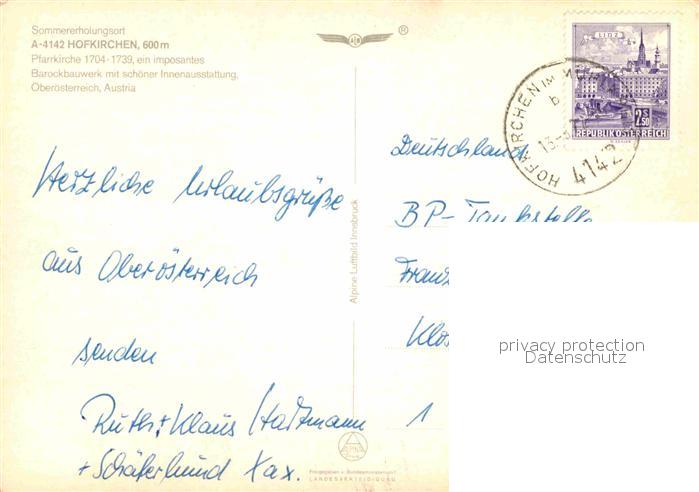 Sommererholungsort
A-4142 HOFKIRCHEN, 600m
Pfarrkirche 1704-1739, ein imposantes
Barockbauwerk mit schöner Innenausstattung,
Oberösterreich, Austria
®
LINZ
2.50
REPUBLIK ÖSTERREICH
HOFKIRCHEN IM
4142
Herzliche Urlaubsgrüße
aus Oberösterreich
senden
Ruth + Klaus
+ Schäferhund Xax.
Alpine Luftbild Innsbruck
Deutschland
BP-Tankstelle
1
privacy protection
Datenschutz
Freigegeben v. Bundesministerium f.
LANDESVERTEIDIGUNG